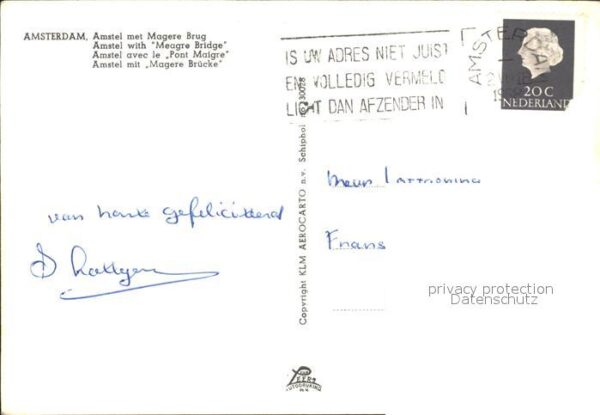 AMSTERDAM, Amstel met Magere Brug
Amstel with "Meagre Bridge"
Amstel avec le „Pont Maigre"
Amstel mit „Magere Brücke"
IS UW ADRES NIET JUIST
EN VOLLEDIG VERMELD
LICHT DAN AFZENDER IN
AMSTERDAM
20 C
NEDERLAND
van harte gefeliciteerd
Frans
Copyright KLM AEROCARTO n.v. Schiphol
privacy protection
Datenschutz